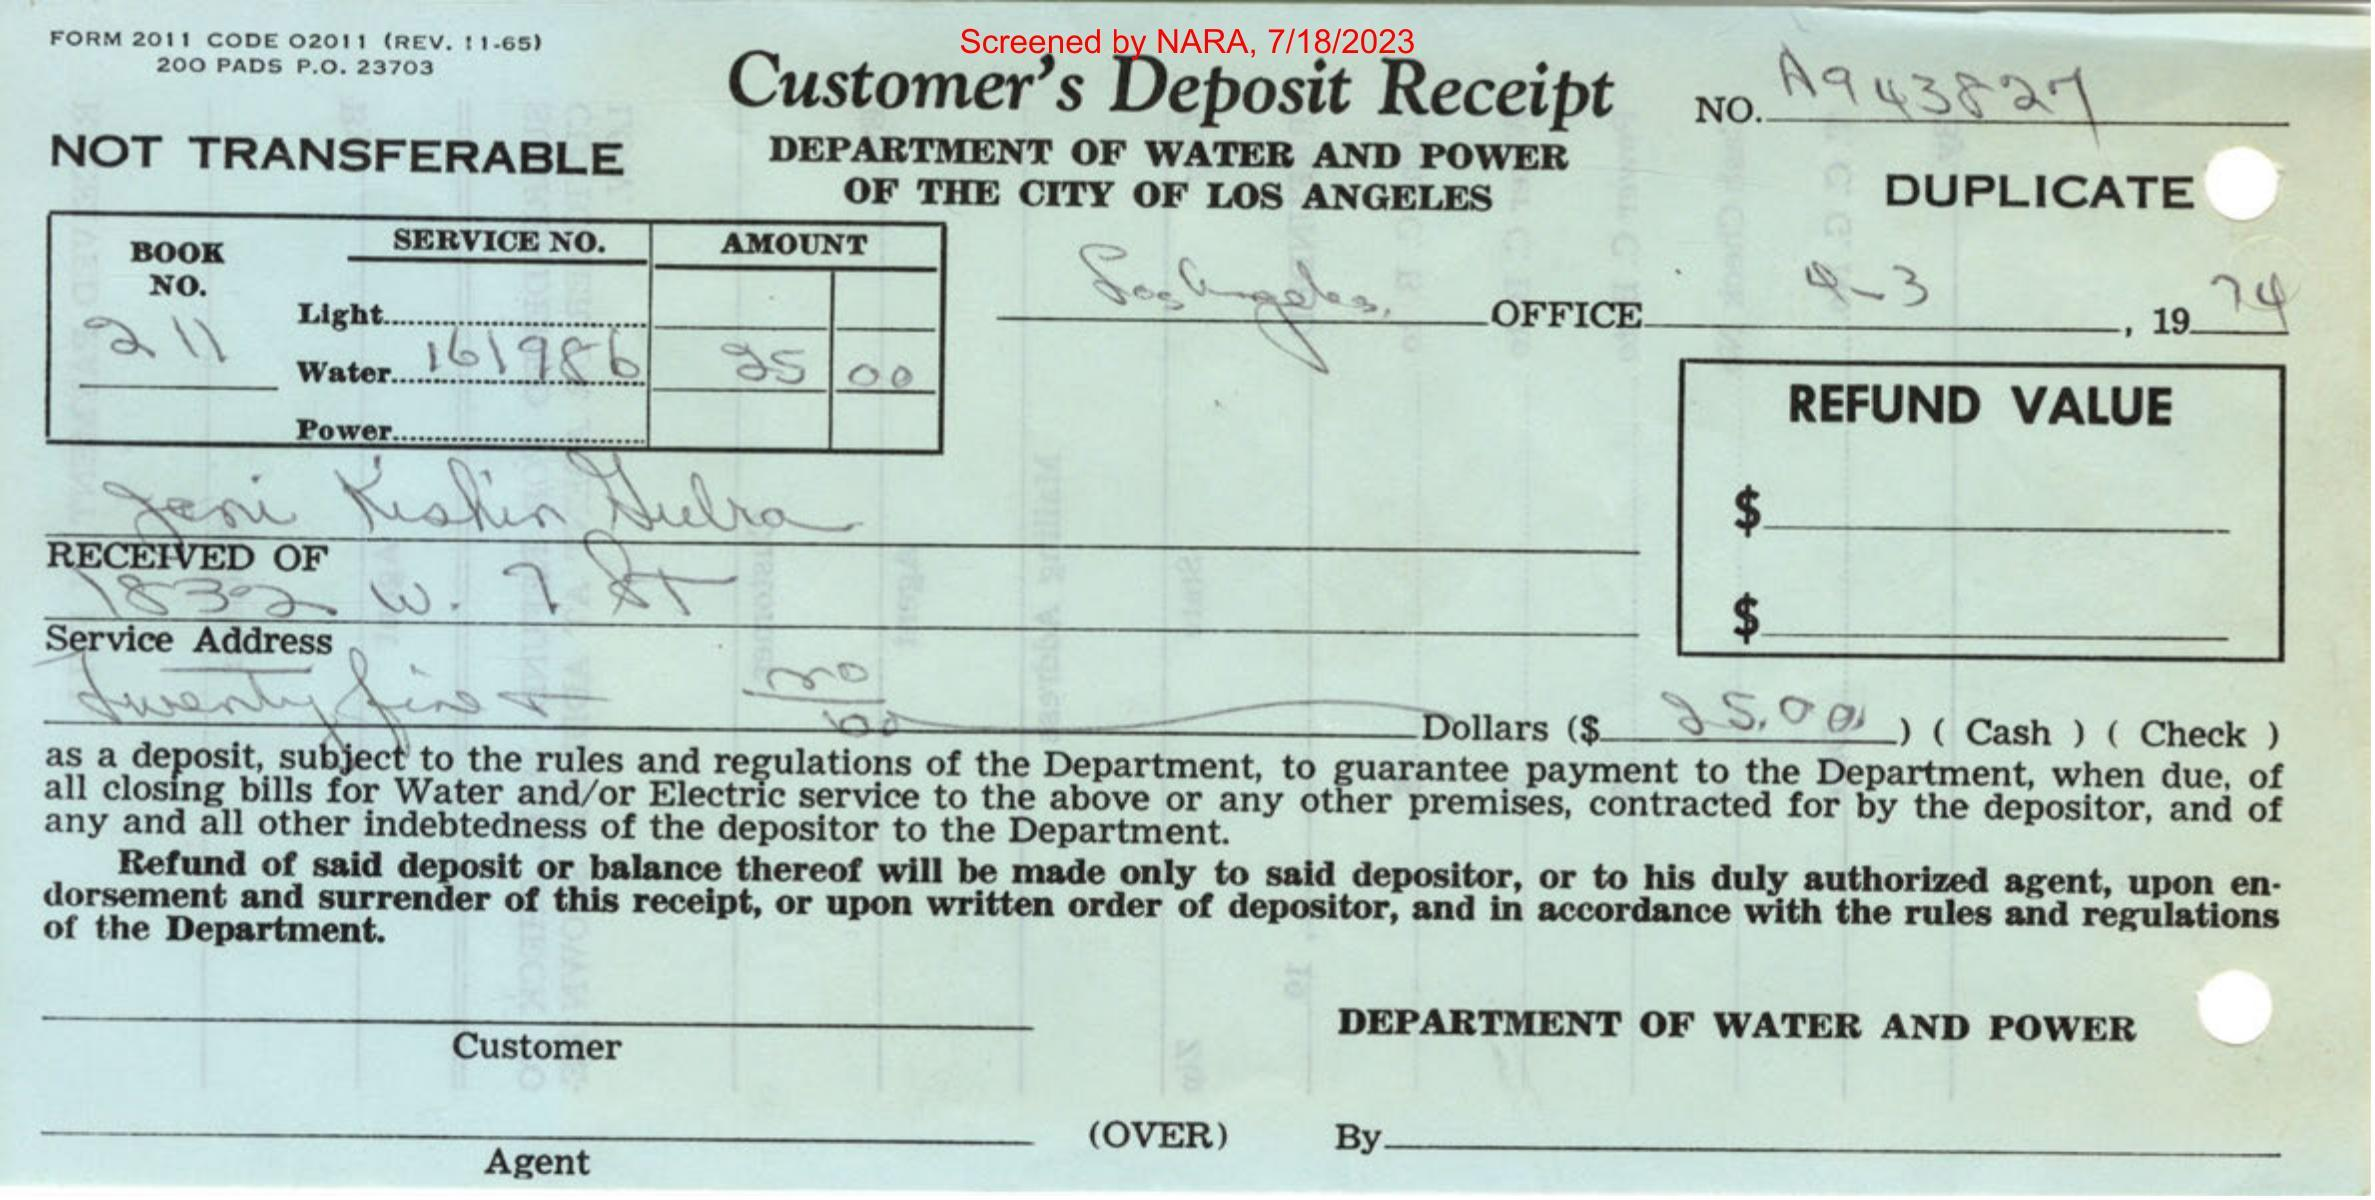 Screened by NARA, 7/18/2023
FORM 2011 CODE 02011 (REV. 11-65)
200 PADS P.O. 23703
Customer's Deposit Receipt
NO. A943827
NOT TRANSFERABLE
DEPARTMENT OF WATER AND POWER
OF THE CITY OF LOS ANGELES
DUPLICATE
BOOK NO. SERVICE NO. AMOUNT
Light
211 Water 161986 25 00
Power
Los Angeles, OFFICE 9-3, 1974
REFUND VALUE
$
$
Jeni Kishin
RECEIVED OF
1832 W. 7 St
Service Address
Twenty five + no/00 Dollars ($ 25.00 ) ( Cash ) ( Check )
as a deposit, subject to the rules and regulations of the Department, to guarantee payment to the Department, when due, of
all closing bills for Water and/or Electric service to the above or any other premises, contracted for by the depositor, and of
any and all other indebtedness of the depositor to the Department.
Refund of said deposit or balance thereof will be made only to said depositor, or to his duly authorized agent, upon en-
dorsement and surrender of this receipt, or upon written order of depositor, and in accordance with the rules and regulations
of the Department.
Customer
DEPARTMENT OF WATER AND POWER
Agent
(OVER)
By